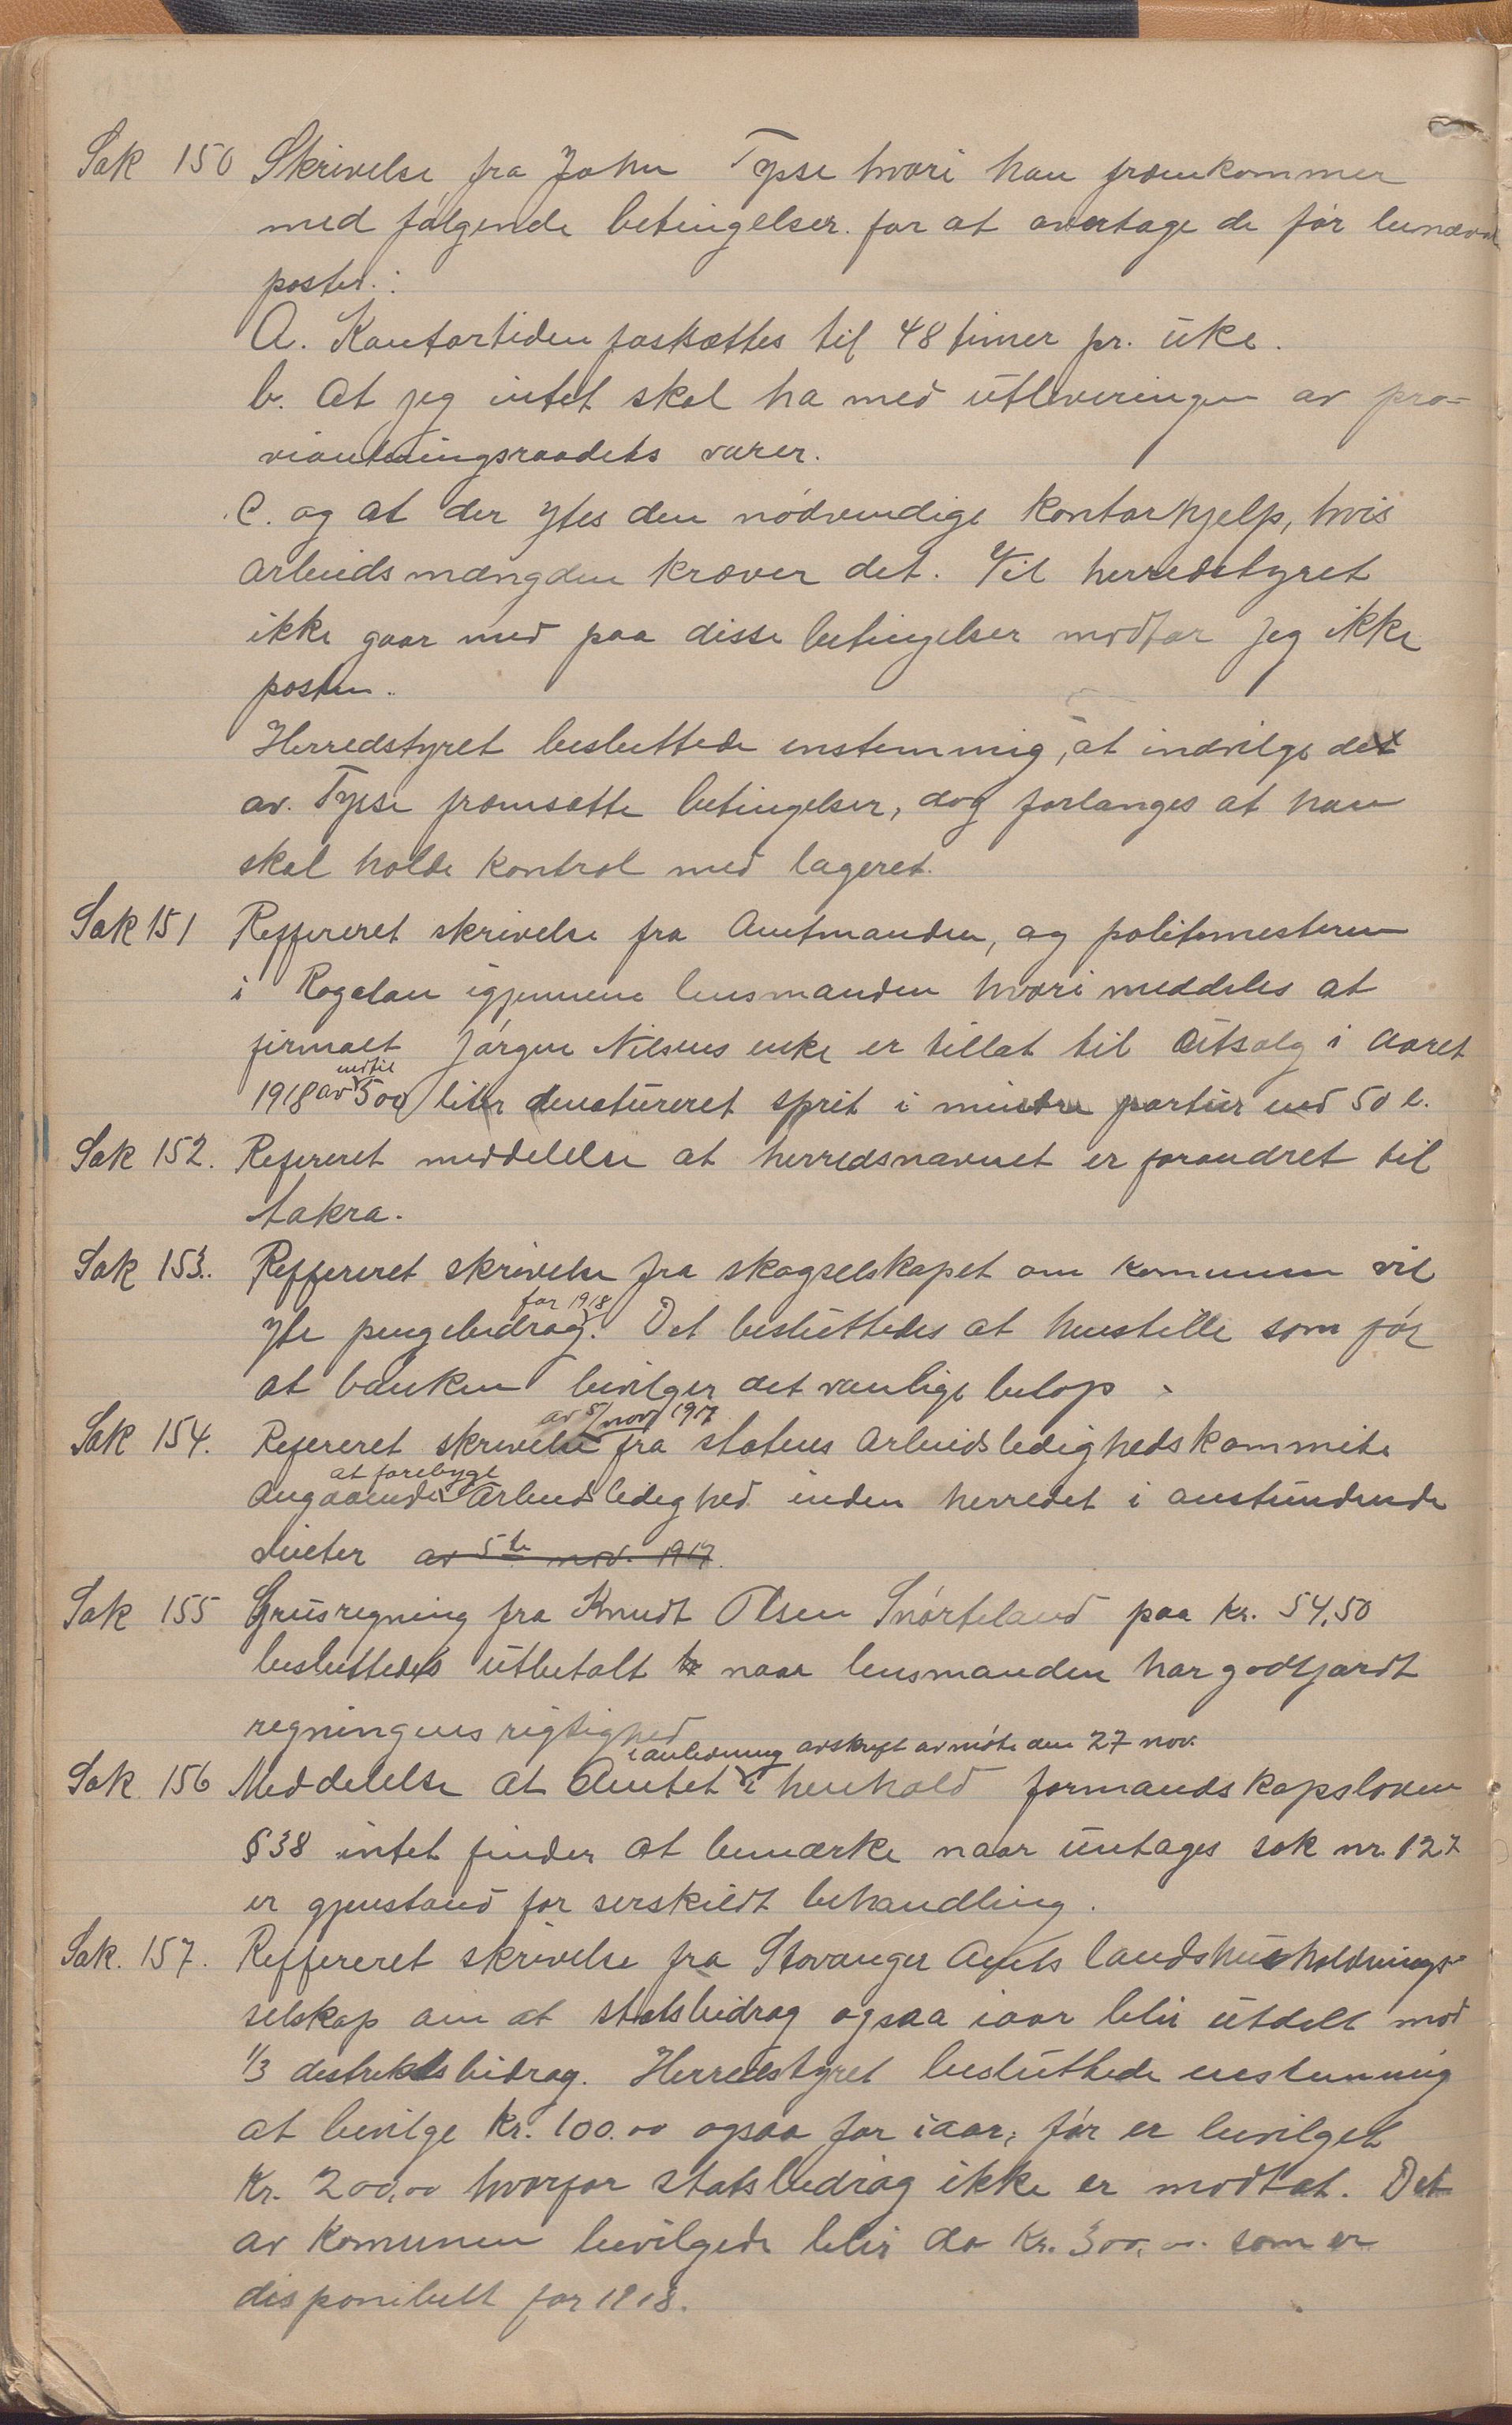 Sak 150 Skrivelse fra John Tysse hvori han fræmkommer
med følgende betingelser. for at overtage de før
poster.:
A. Kontortiden fastsættes til 48 timer pr. uke.
b. At jeg intet skal ha med utleveringen av pro-
vianteringsraadets varer.
C. og at der ytes den nødvendige kontorhjelp, hvis
arbeidsmængden kræver det. Vil herredstyret
ikke gaar med paa disse betingelser modtar jeg ikke
posten.
Herredstyret besluttede enstemmig, at indvilge de
av. Tysse fræmsatte betingelser, dog forlanges at han
skal holde kontrol med lageret.
Sak 151 Reffereret skrivelse fra Amtmanden, og politimesteren
i Rogalan igjennem lensmanden hvori meddeles at
firmaet Jørgen Nilsens enke er tillat til Utsalg i Aaret
indtil
1918 av 500 liter denatureret sprit i mindre partier end 50 l.
Sak 152. Refereret meddelelse at herredsnavnet er forandret til
Aakra.
Sak 153. Reffereret skrivelse fra skogselskapet om kommunen vil
for 1918
yte pengebidrag. Det besluttedes at henstille som før
at banken bevilger det vanlige beløp.
av 5/nov 1917
Sak 154. Refereret skrivelse fra statens Arbeidsledighedskommite
at forebyge
Angaaende Arbeidsledighed inden herredet i anstundende
vinter av 5te nov. 1917.
Sak 155 Grusregning fra Knudt Olsen Snørteland paa kr. 54,50
besluttedes utbetalt naar lensmanden har godtjordt
regningens rigtighed
i anledning avskrift av møte den 27 nov.
Sak 156 Meddelelse at Amtet i henhold formandskapsloven
§ 38 intet finder at bemærke naar untages sak nr. 127
er gjenstand for serskildt behandling.
Sak. 157. Reffereret skrivelse fra Stavanger Amts landshusholdnings-
selskap om at statsbidrag ogsaa iaar blir utdelt mod
1/3 destriktsbidrag. Herredstyret besluttede enstemmig
at bevilge kr. 100.00 ogsaa for iaar, før er bevilget
Kr. 200,00 hvorfor statsbidrag ikke er modtat. Det
av kommunen bevilgede blir da kr. 300,00. som er
disponibelt for 1918.